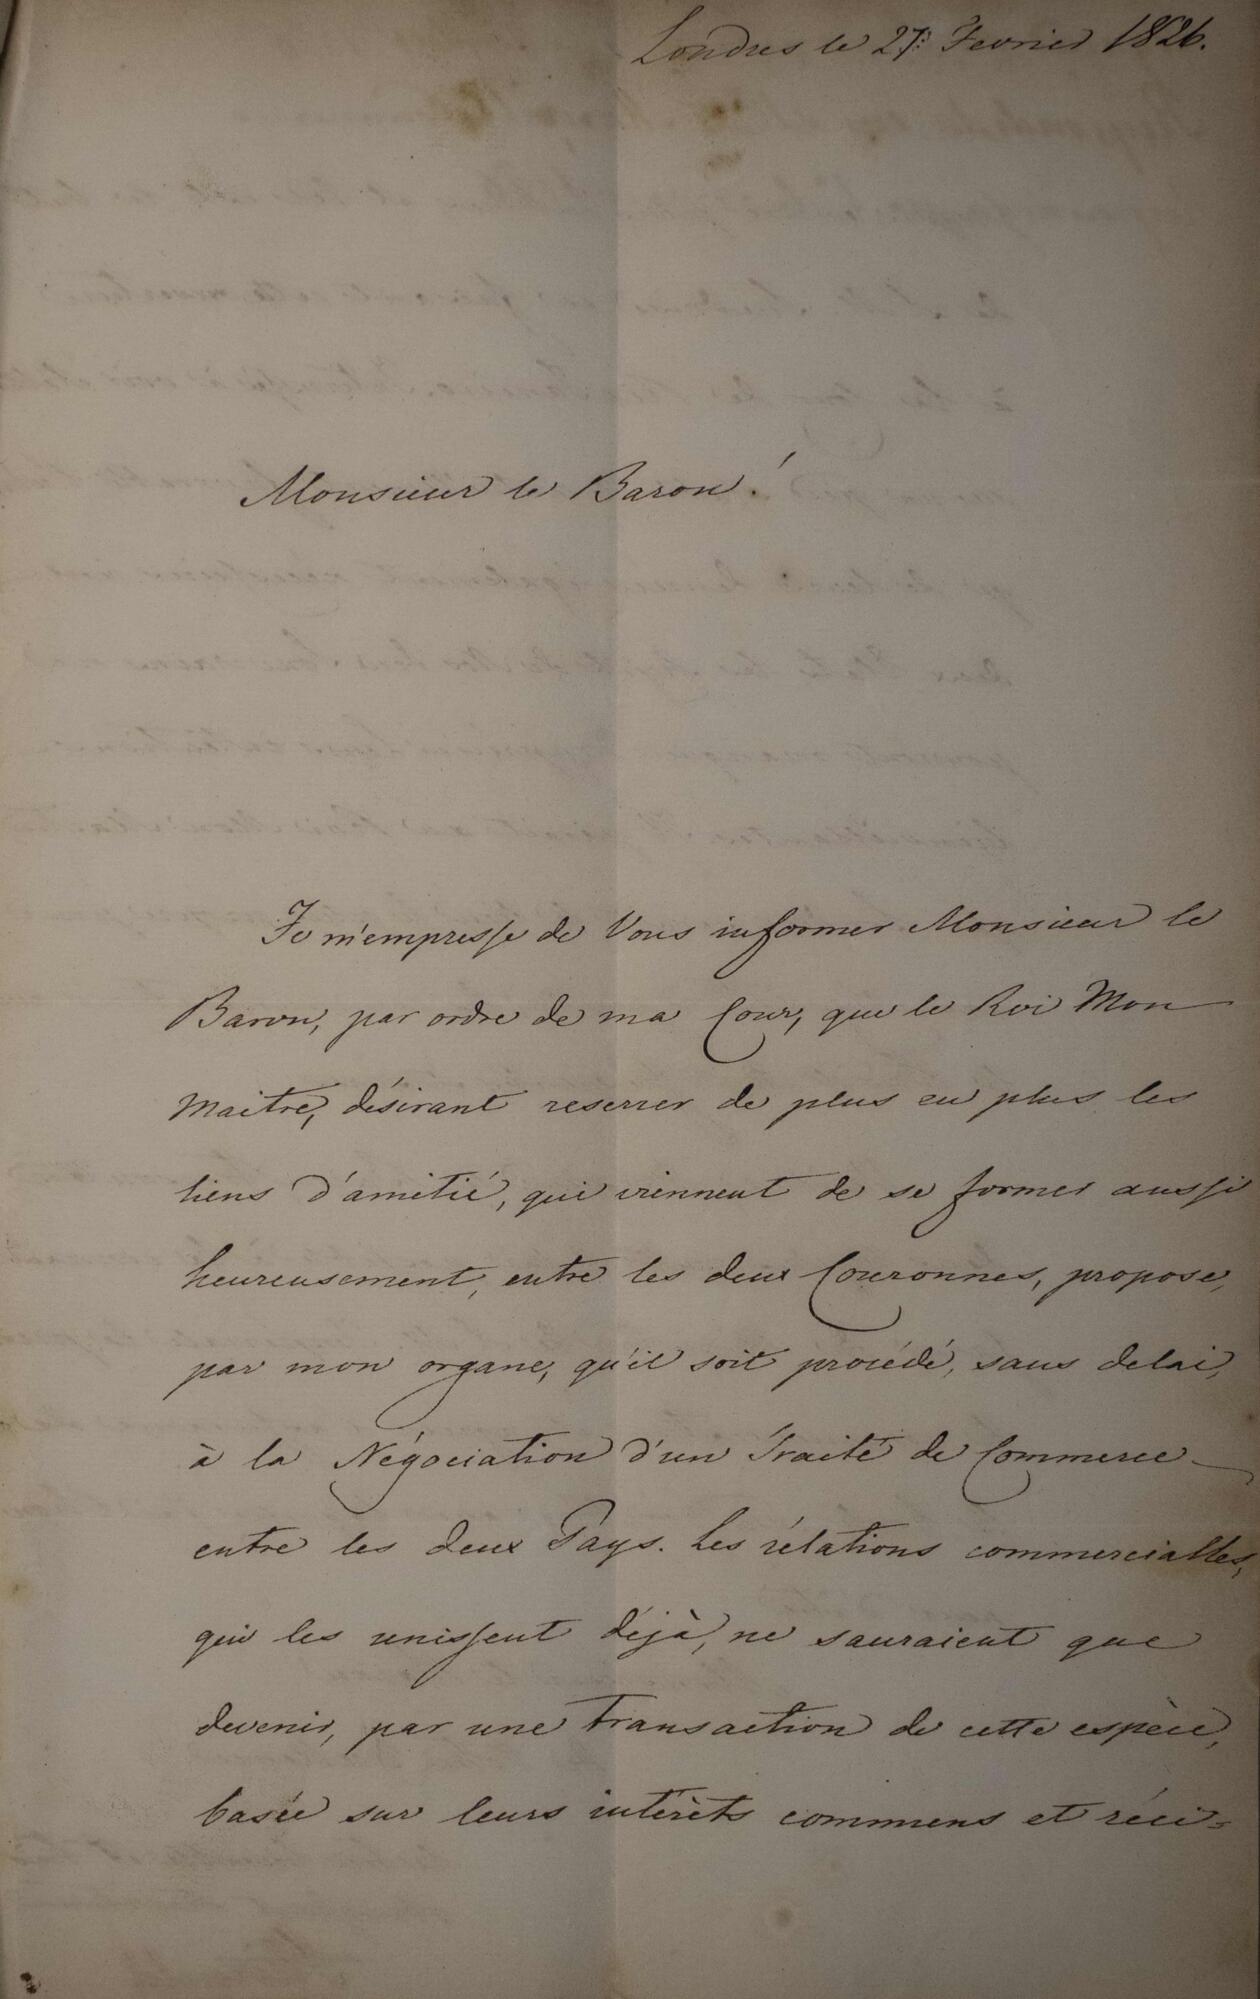 Londres le 27: Fevrier 1826.
Monsieur le Baron!
Je m'empresse de Vous informer Monsieur le
Baron, par ordre de ma Cour, que le Roi Mon
Maitre, désirant reserrer de plus en plus les
liens d'amitié, qui viennent de se former aussi
heureusement, entre les deux Couronnes, propose,
par mon organe, qu'il soit procédé, sans delai,
à la Négociation d'un Traité de Commerce
entre les deux Pays. Les rélations commercialles,
qui les unissent déjà, ne sauraient que
devenir, par une transaction de cette espèce,
basée sur leurs intérèts communs et réci=